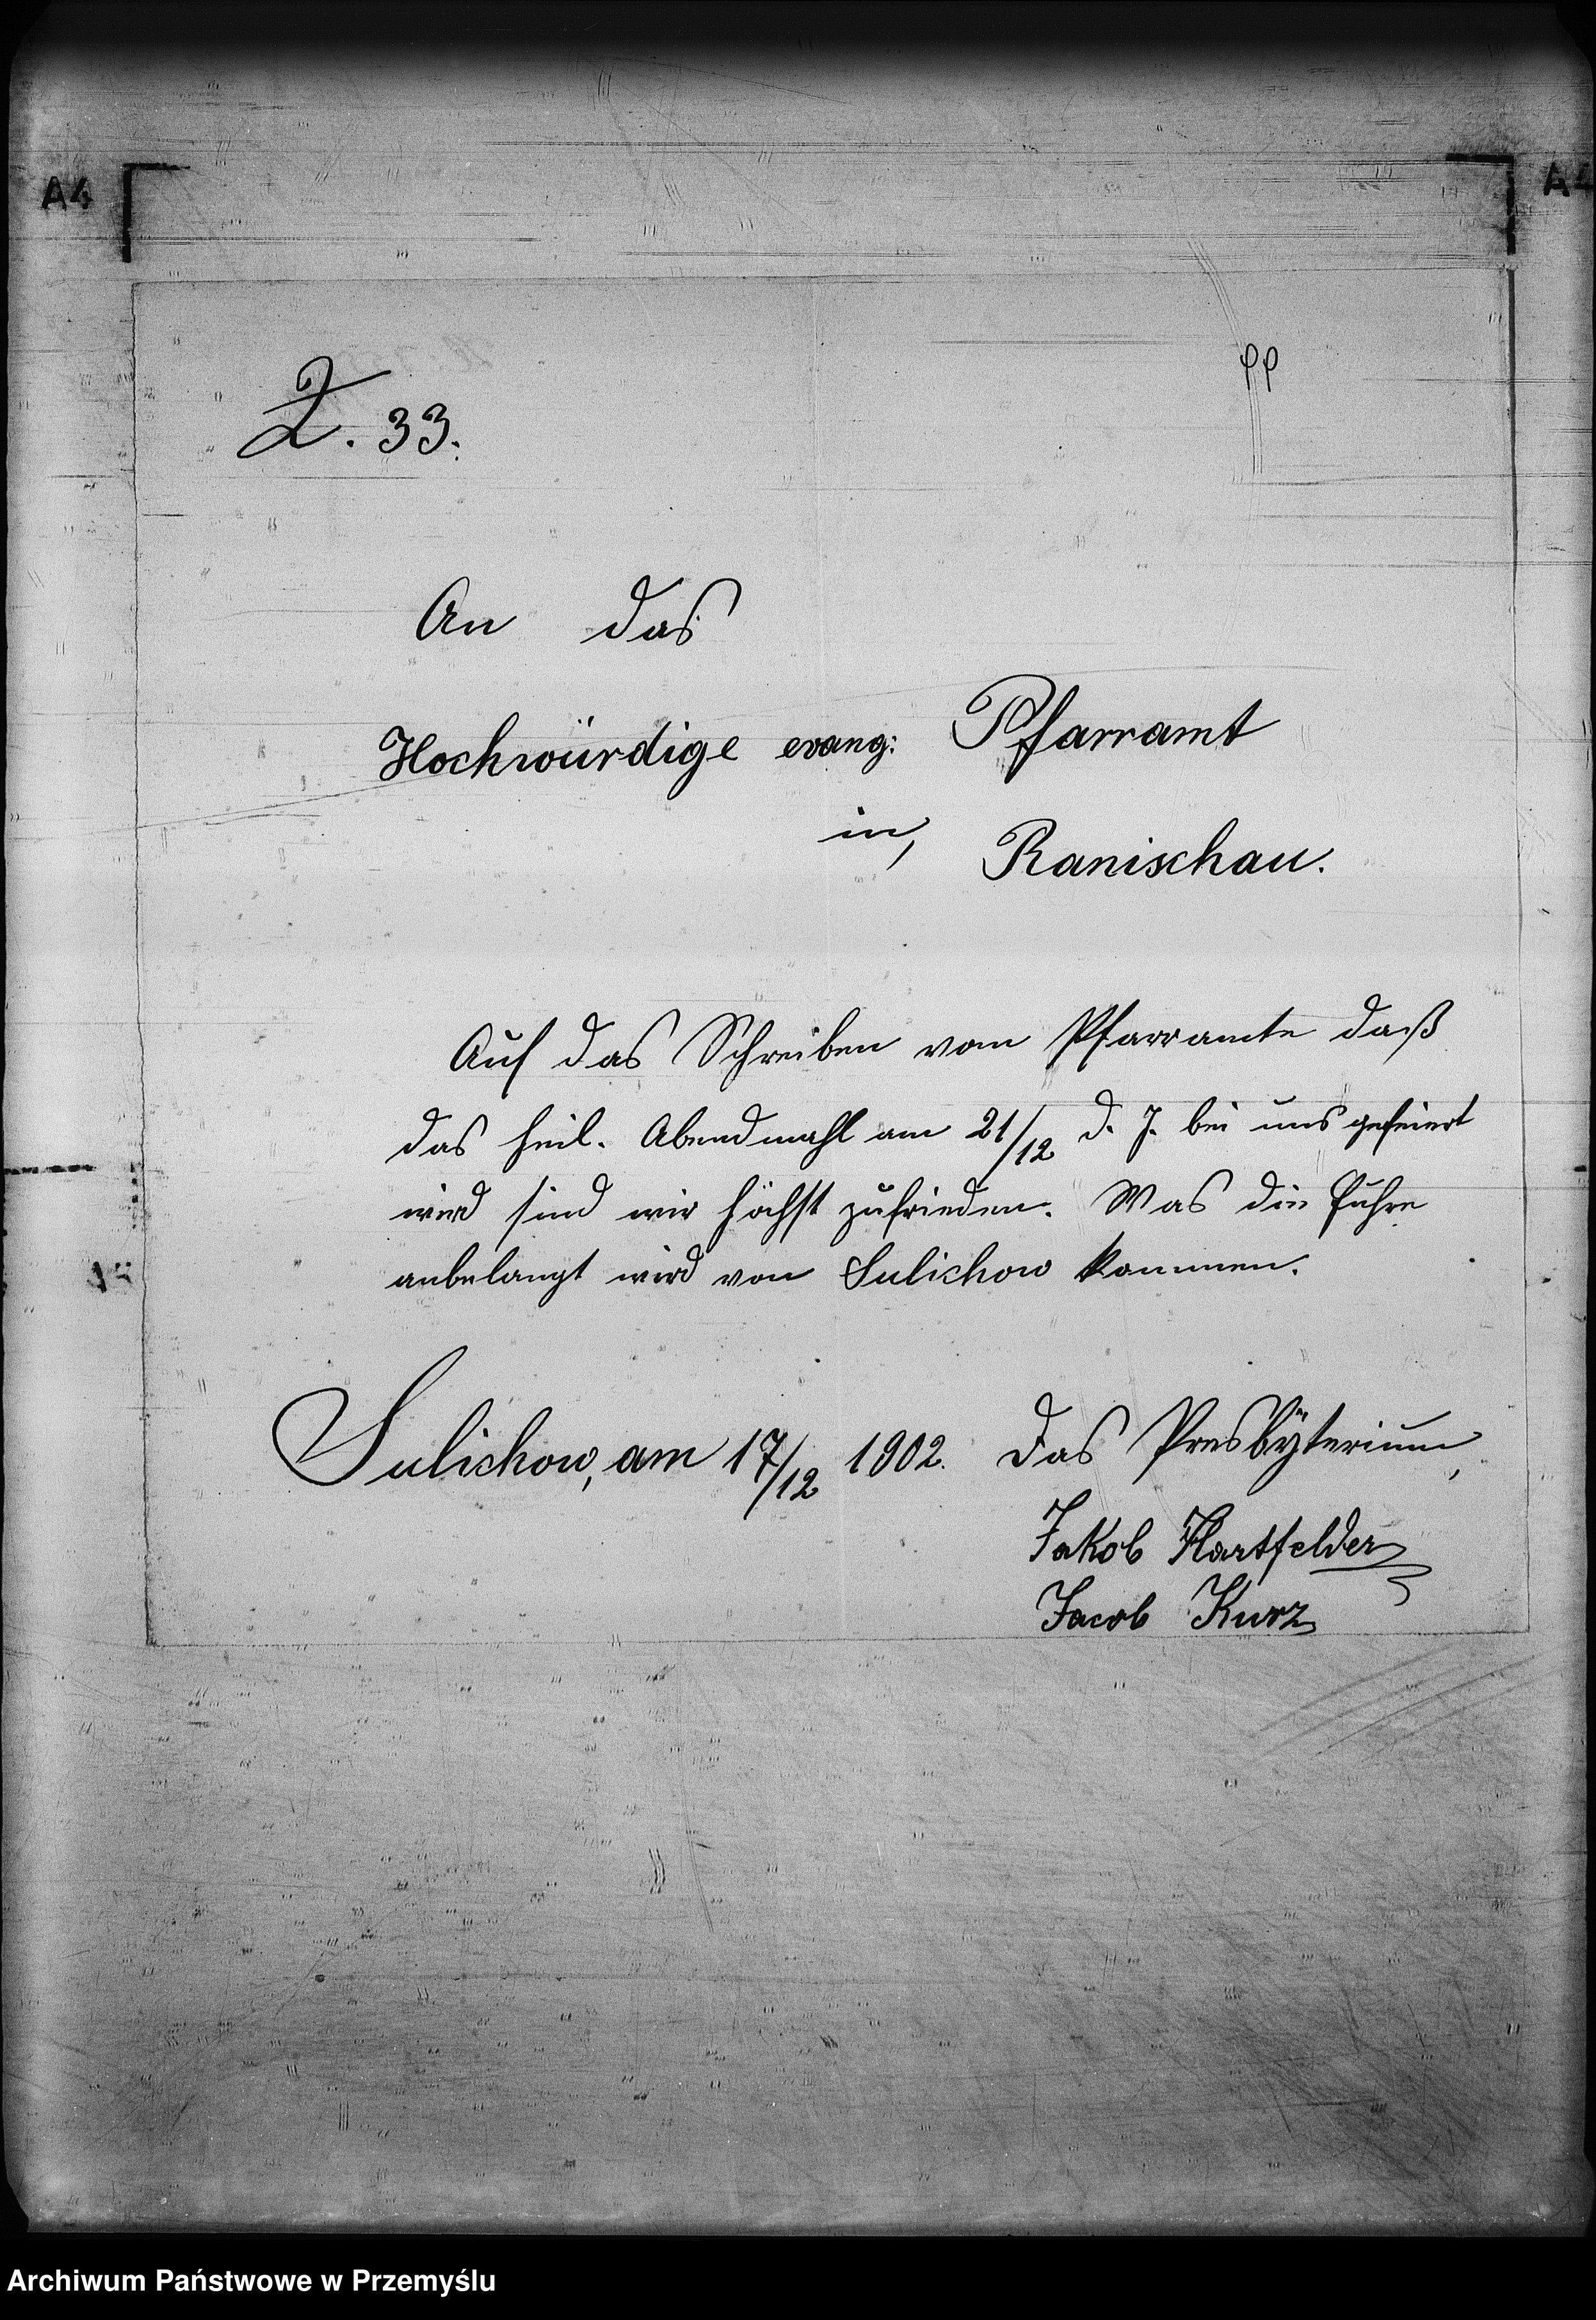 A4
A4
Z. 33.
An das
Hochwürdige evang: Pfarramt
in, Ranischau.
Auf das Schreiben vom Pfarramte daß
das heil. Abendmahl am 21/12 d. J. bei uns gefeiert
wird sind wir höchst zufrieden. Was die Fuhre
anbelangt wird von Sulichow kommen.
Sulichow, am 17/12 1902. Das Presbÿterium,
Jakob Hartfelder
Jacob Kurz
Archiwum Państwowe w Przemyślu